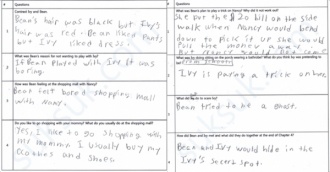 Contrast Ivy and Bean.
Bean's hair was black but Ivy's
hair was red. Bean liked Pants
but Ivy liked dress.
What was Bean's reason for not wanting to play with Ivy?
If Bean played with Ivy it was
boring.
How was Bean feeling at the shopping mall with Nancy?
Bean felt bored shopping mall
with Nancy.
Do you like to go shopping with your mommy? What do you usually do at the shopping mall?
Yes, I like to go shopping with
my mommy I usually buy my
clothes and shoes.
What was Bean's plan to play a trick on Nancy? Why did it not work out?
She put the $20 bill on the side
walk when Nancy would bend
down to pick it up she would
Pull the money away.
But Nancy would
What was Ivy doing sitting on the porch wearing a bathrobe? What do you think Ivy was pretending to
Ivy is paring a trick on her.
What did Bean try to scare Ivy?
Bean tried to be a Ghost.
How did Bean and Ivy end and what did they do together at the end of Chapter 4?
Bean and Ivy would hide in the
Ivy's secret spot.